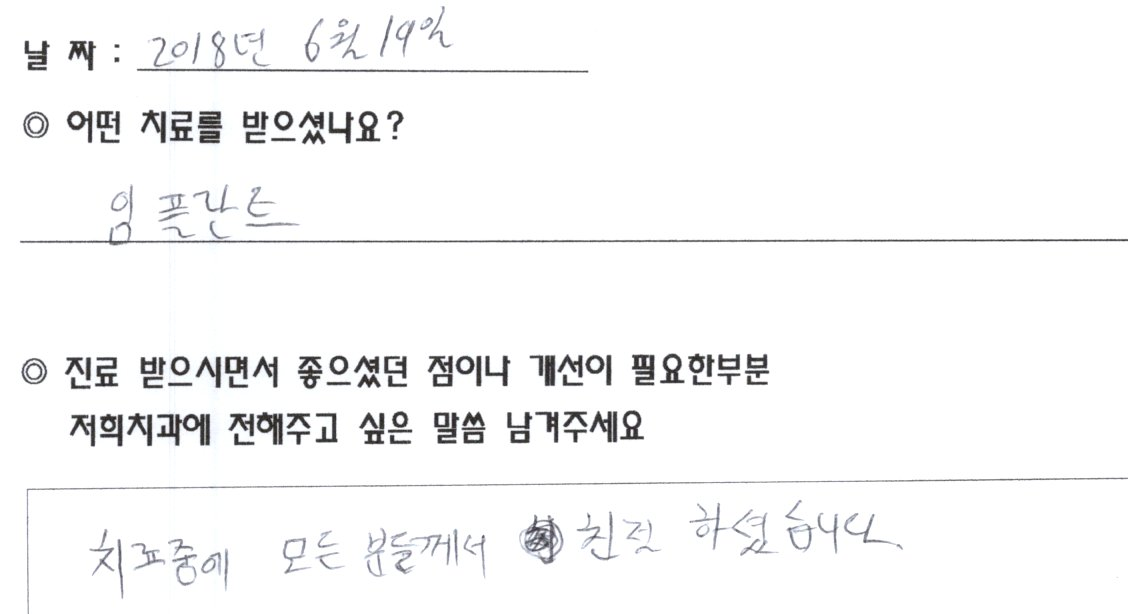 날 짜 : 2018년 6월 19일
◎ 어떤 치료를 받으셨나요?
임플란트
◎ 진료 받으시면서 좋으셨던 점이나 개선이 필요한부분
저희치과에 전해주고 싶은 말씀 남겨주세요
치료중에 모든 분들께서 친절 하셨습니다.